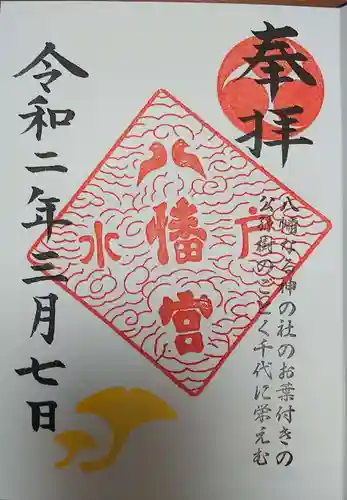 奉拝
八幡なる神の社のお葉付きの
公孫樹のごとく千代に栄えむ
八幡宮
水戸
令和二年三月七日